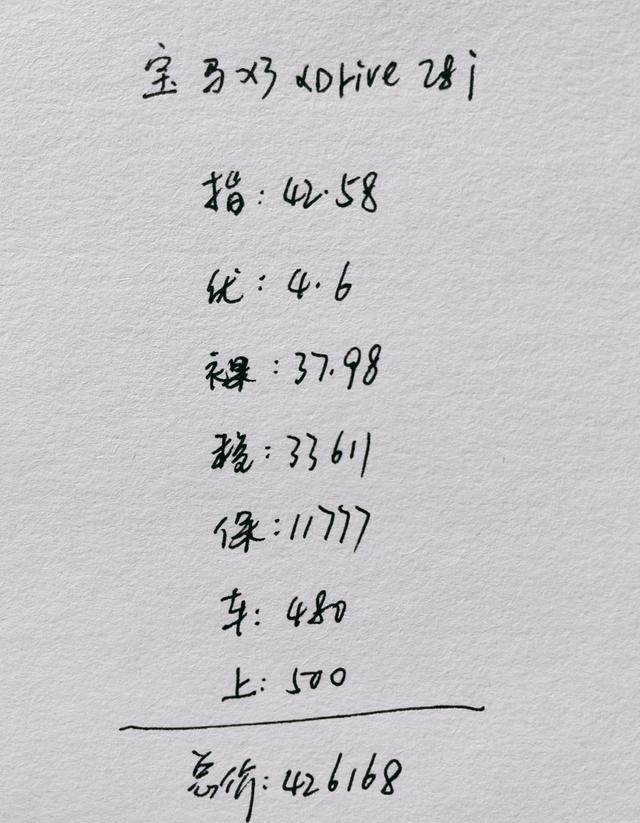 宝马X3 xDrive 28i
指:42.58
优:4.6
裸:37.98
税:33611
保:11777
车:480
上:500
总价:426168